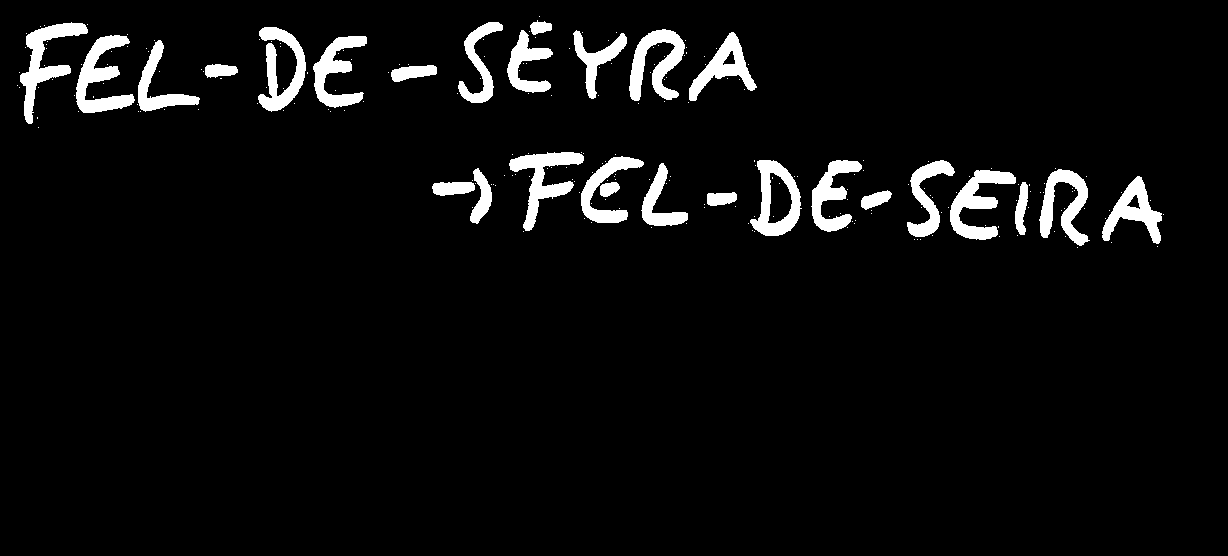 FEL-DE-SEYRA
→ FEL-DE-SEIRA